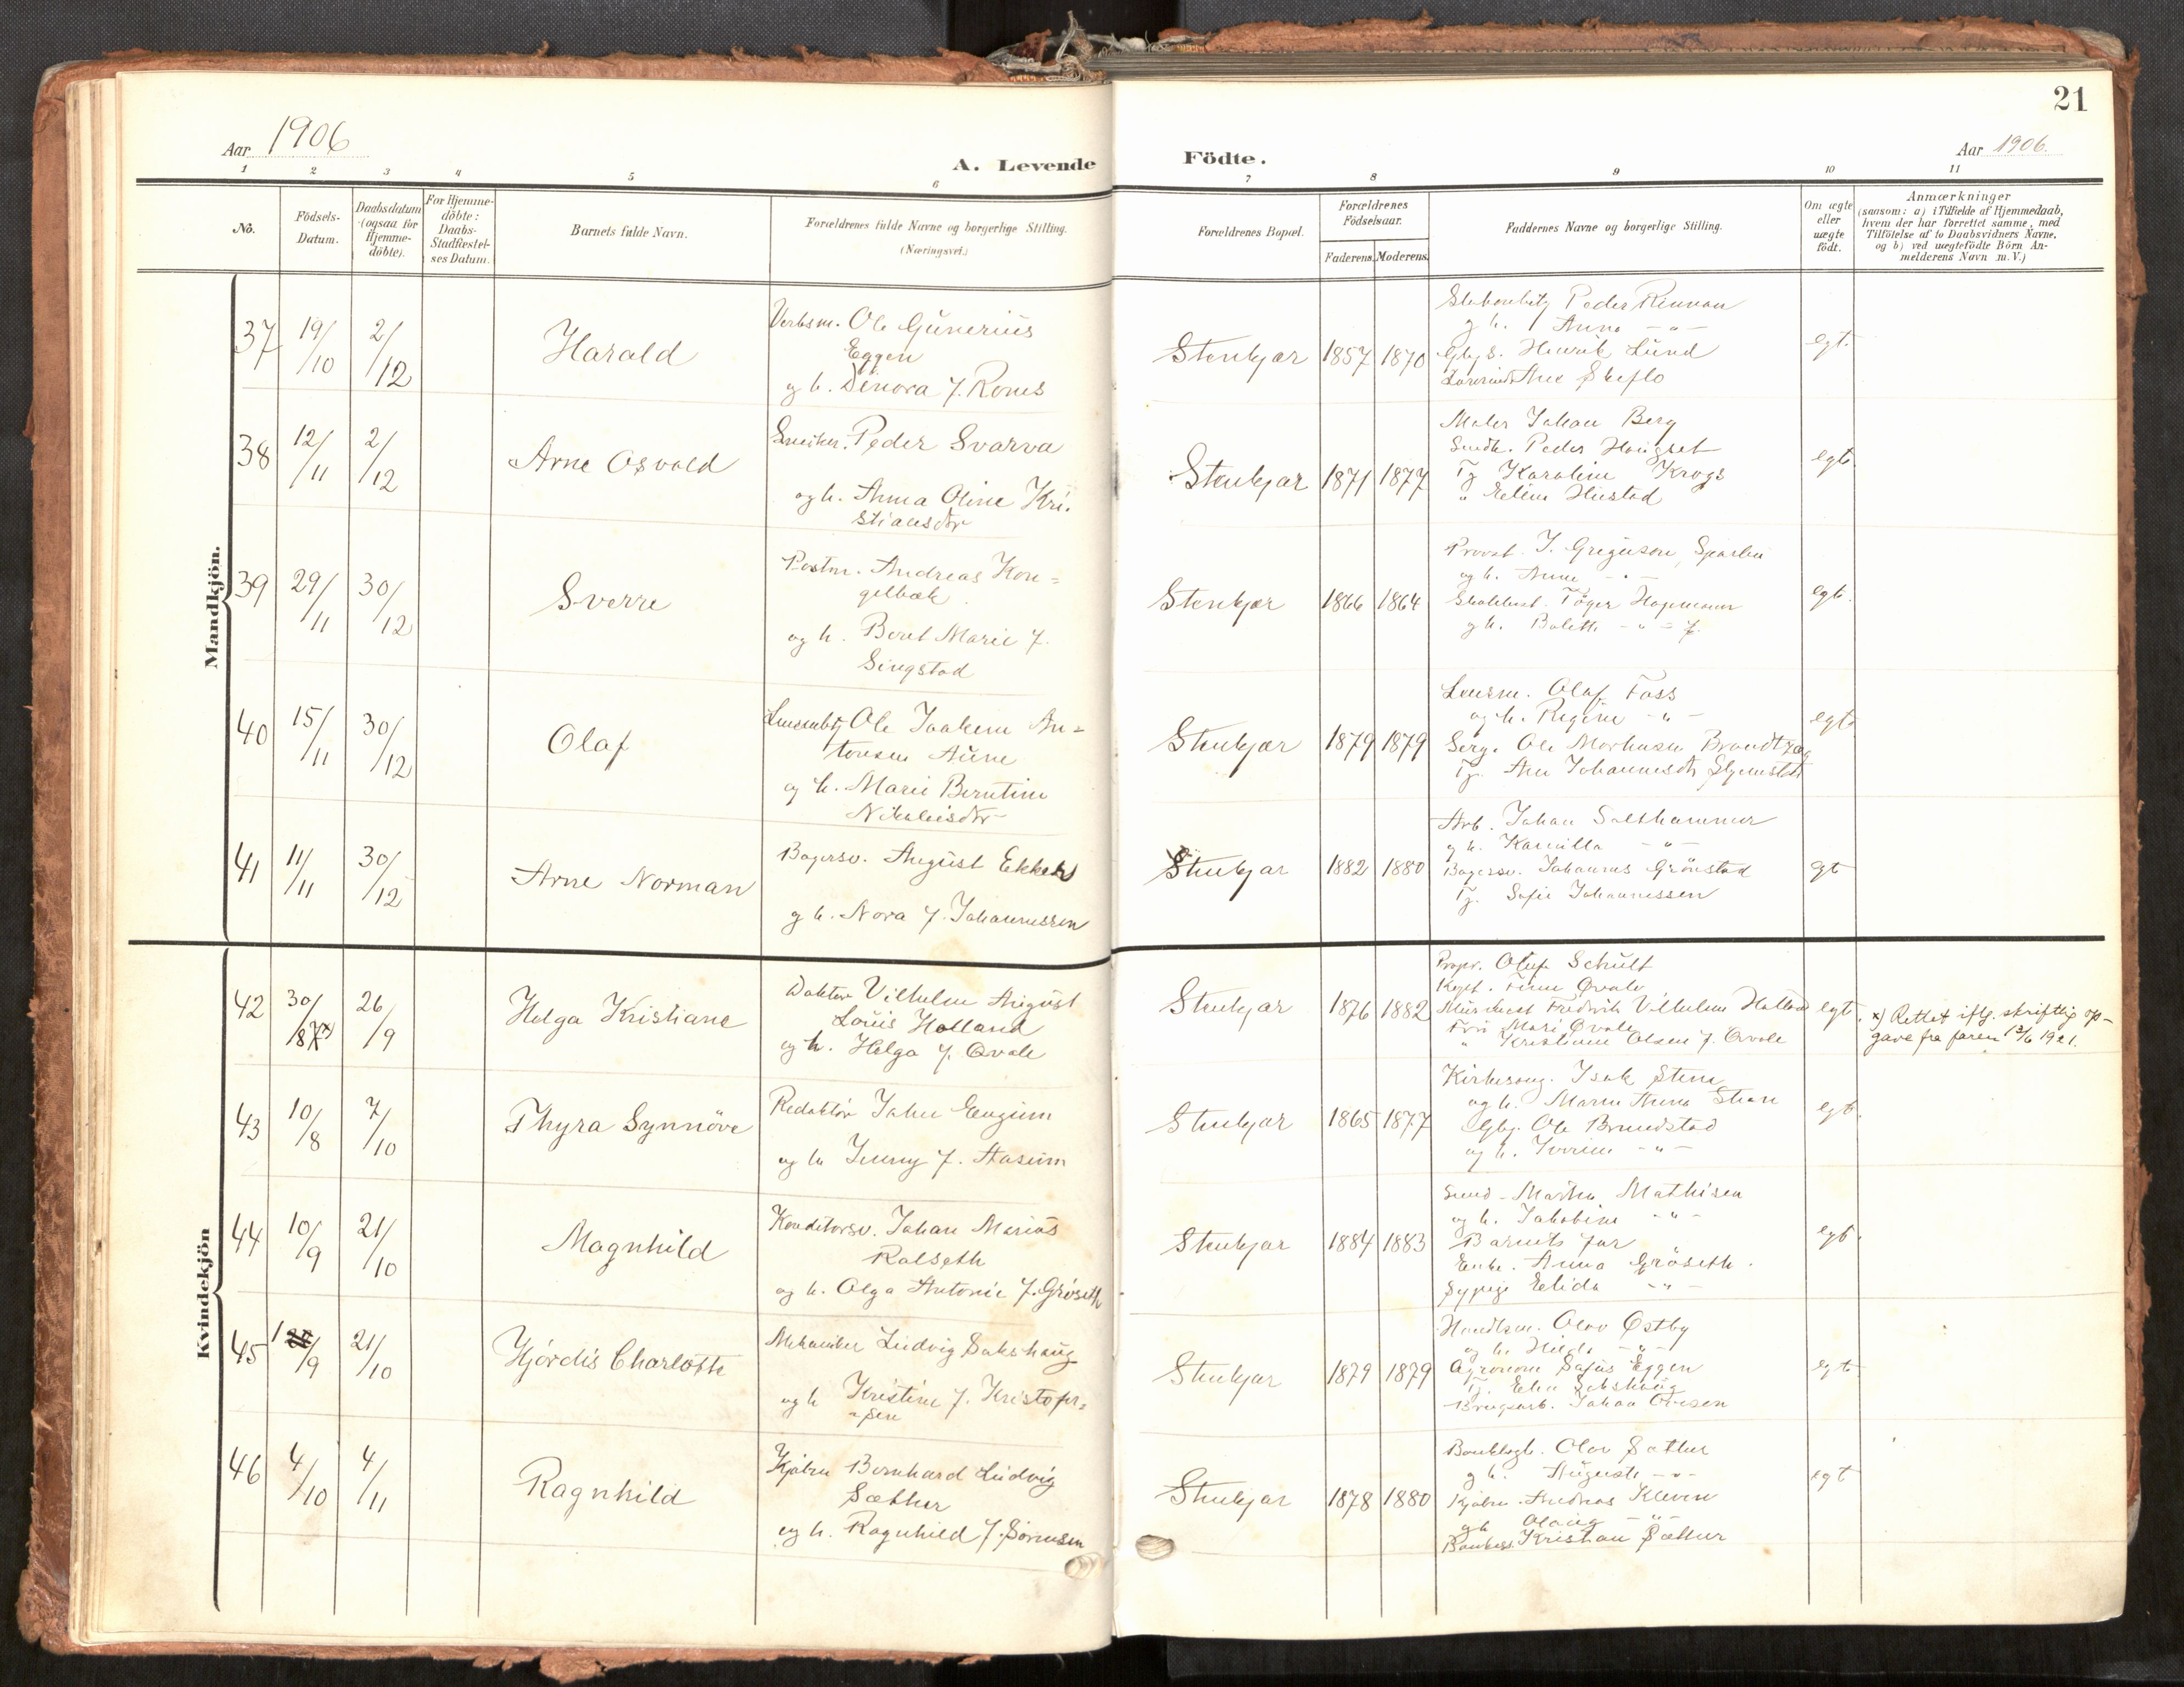 21
Aar 1906
A. Levende Födte.
Aar 1906.
1 2 3 4 5 6 7 8 9 10 11
No.
Födsels-Datum.
Daabsdatum (ogsaa for Hjemme-döbte).
For Hjemme-döbte: Daabs-Stadfæstel-ses Datum.
Barnets fulde Navn.
Forældrenes fulde Navne og borgerlige Stilling. (Næringsvei.)
Forældrenes Bopæl.
Forældrenes Födselsaar.
Faderens. Moderens.
Faddernes Navne og borgerlige Stilling.
Om ægte eller uægte födt.
Anmærkninger
(saasom: a) i Tilfælde af Hjemmedaab,
hvem der har forrettet samme, med
Tilföielse af to Daabsvidners Navne,
og b) ved uægtefödte Börn An-
melderens Navn m. V.)
Mandkjön.
37 19/10 2/12 Harald
Ole Gunerius
Eggen
og h. Dénora f. Romes
Stenkjær 1857 1870
Peder Rennan
g h. Anna -"-
Henrik Lund
Ane Skeflo
egt.
38 12/11 2/12 Arne Osvald
Peder Svarva
og h. Anna Oline Kri-
stiansdtr
Stenkjær 1871 1877
Maler Johan Berg
Peder Haugset
Tj Karoline Krogs
" Hustad
egt.
39 29/11 30/12 Sverre
Postm. Andreas Kon=
gelbæk
og h. Berit Marie f.
Singstad
Stenkjær 1866 1864
Provst J. Grigusen,
og h. Anne -"-
Töger Hagemann
g h. Bolette -"- f.
egt.
40 15/11 30/12 Olaf
Ole Joakim An=
tonsen Aune
og h. Marie Berntine
Nikolaisdtr
Stenkjær 1879 1879
Lensm. Olaf Foss
og h. Regine -"-
Serg. Ole Brandtzæg
Tj. Ane Johannesdtr
egt.
41 11/11 30/12 Arne Norman
Bagersv. August Ekker
g h. Nora f. Johannessen
Stenkjær 1882 1880
Arb. Johan Salthammer
g h. Kamilla -"-
Bagersv. Johannes Grönstad
Tj. Sofie Johannessen
egt
Kvindekjön
42 30/8 x) 26/9 Helga Kristiane
Doktor Vilhelm August
Louis Holland
og h. Helga f. Qvale
Stenkjær 1876 1882
Propr. Oluf Schult
Kapt. Finn Qvale
Fredrik Vilhelm Holland
Frö Mari Qvale
" Kristiane Olsen f. Qvale
egt.
x) Rettet iflg. skriftlig op-
gave fra faren 13/6 1921.
43 10/8 7/10 Thyra Synnöve
Redaktör Johan Eugum
og h Jenny f. Aasum
Stenkjær 1865 1877
Kirkesang. Isak Sten
og h. Maren Anna Sten
Gbj. Ole Brundstad
og h. -"-
egt.
44 10/9 21/10 Magnhild
Konditorsv. Johan Marius
Rolseth
og h. Olga Antonie f. Gröseth
Stenkjær 1884 1883
Martin Mathisen
og h. Jakobine -"-
Barnets far
Enke. Anna Gröseth.
Sypige Elida -"-
egt.
45 1/9 21/10 Hjördis Charlotte
Mekaniker Ludvig Sakshaug
og h Kristine f. Kristofer=
sen
Stenkjær 1879 1879
Handlsm. Olav Østby
og h. Hilda -"-
Agronom Eggen
Tj. Sakshaug
Brugsarb. Johan Olesen
egt.
46 4/10 4/11 Ragnhild
Kjöbm Bernhard Ludvig
Sæther
og h. Ragnhild f. Sörensen
Stenkjær 1878 1880
Olav Sæther
g h. Auguste -"-
Kjöbm. Andreas Kleven
gh Olaug -"-
Kristian Sæther
egt